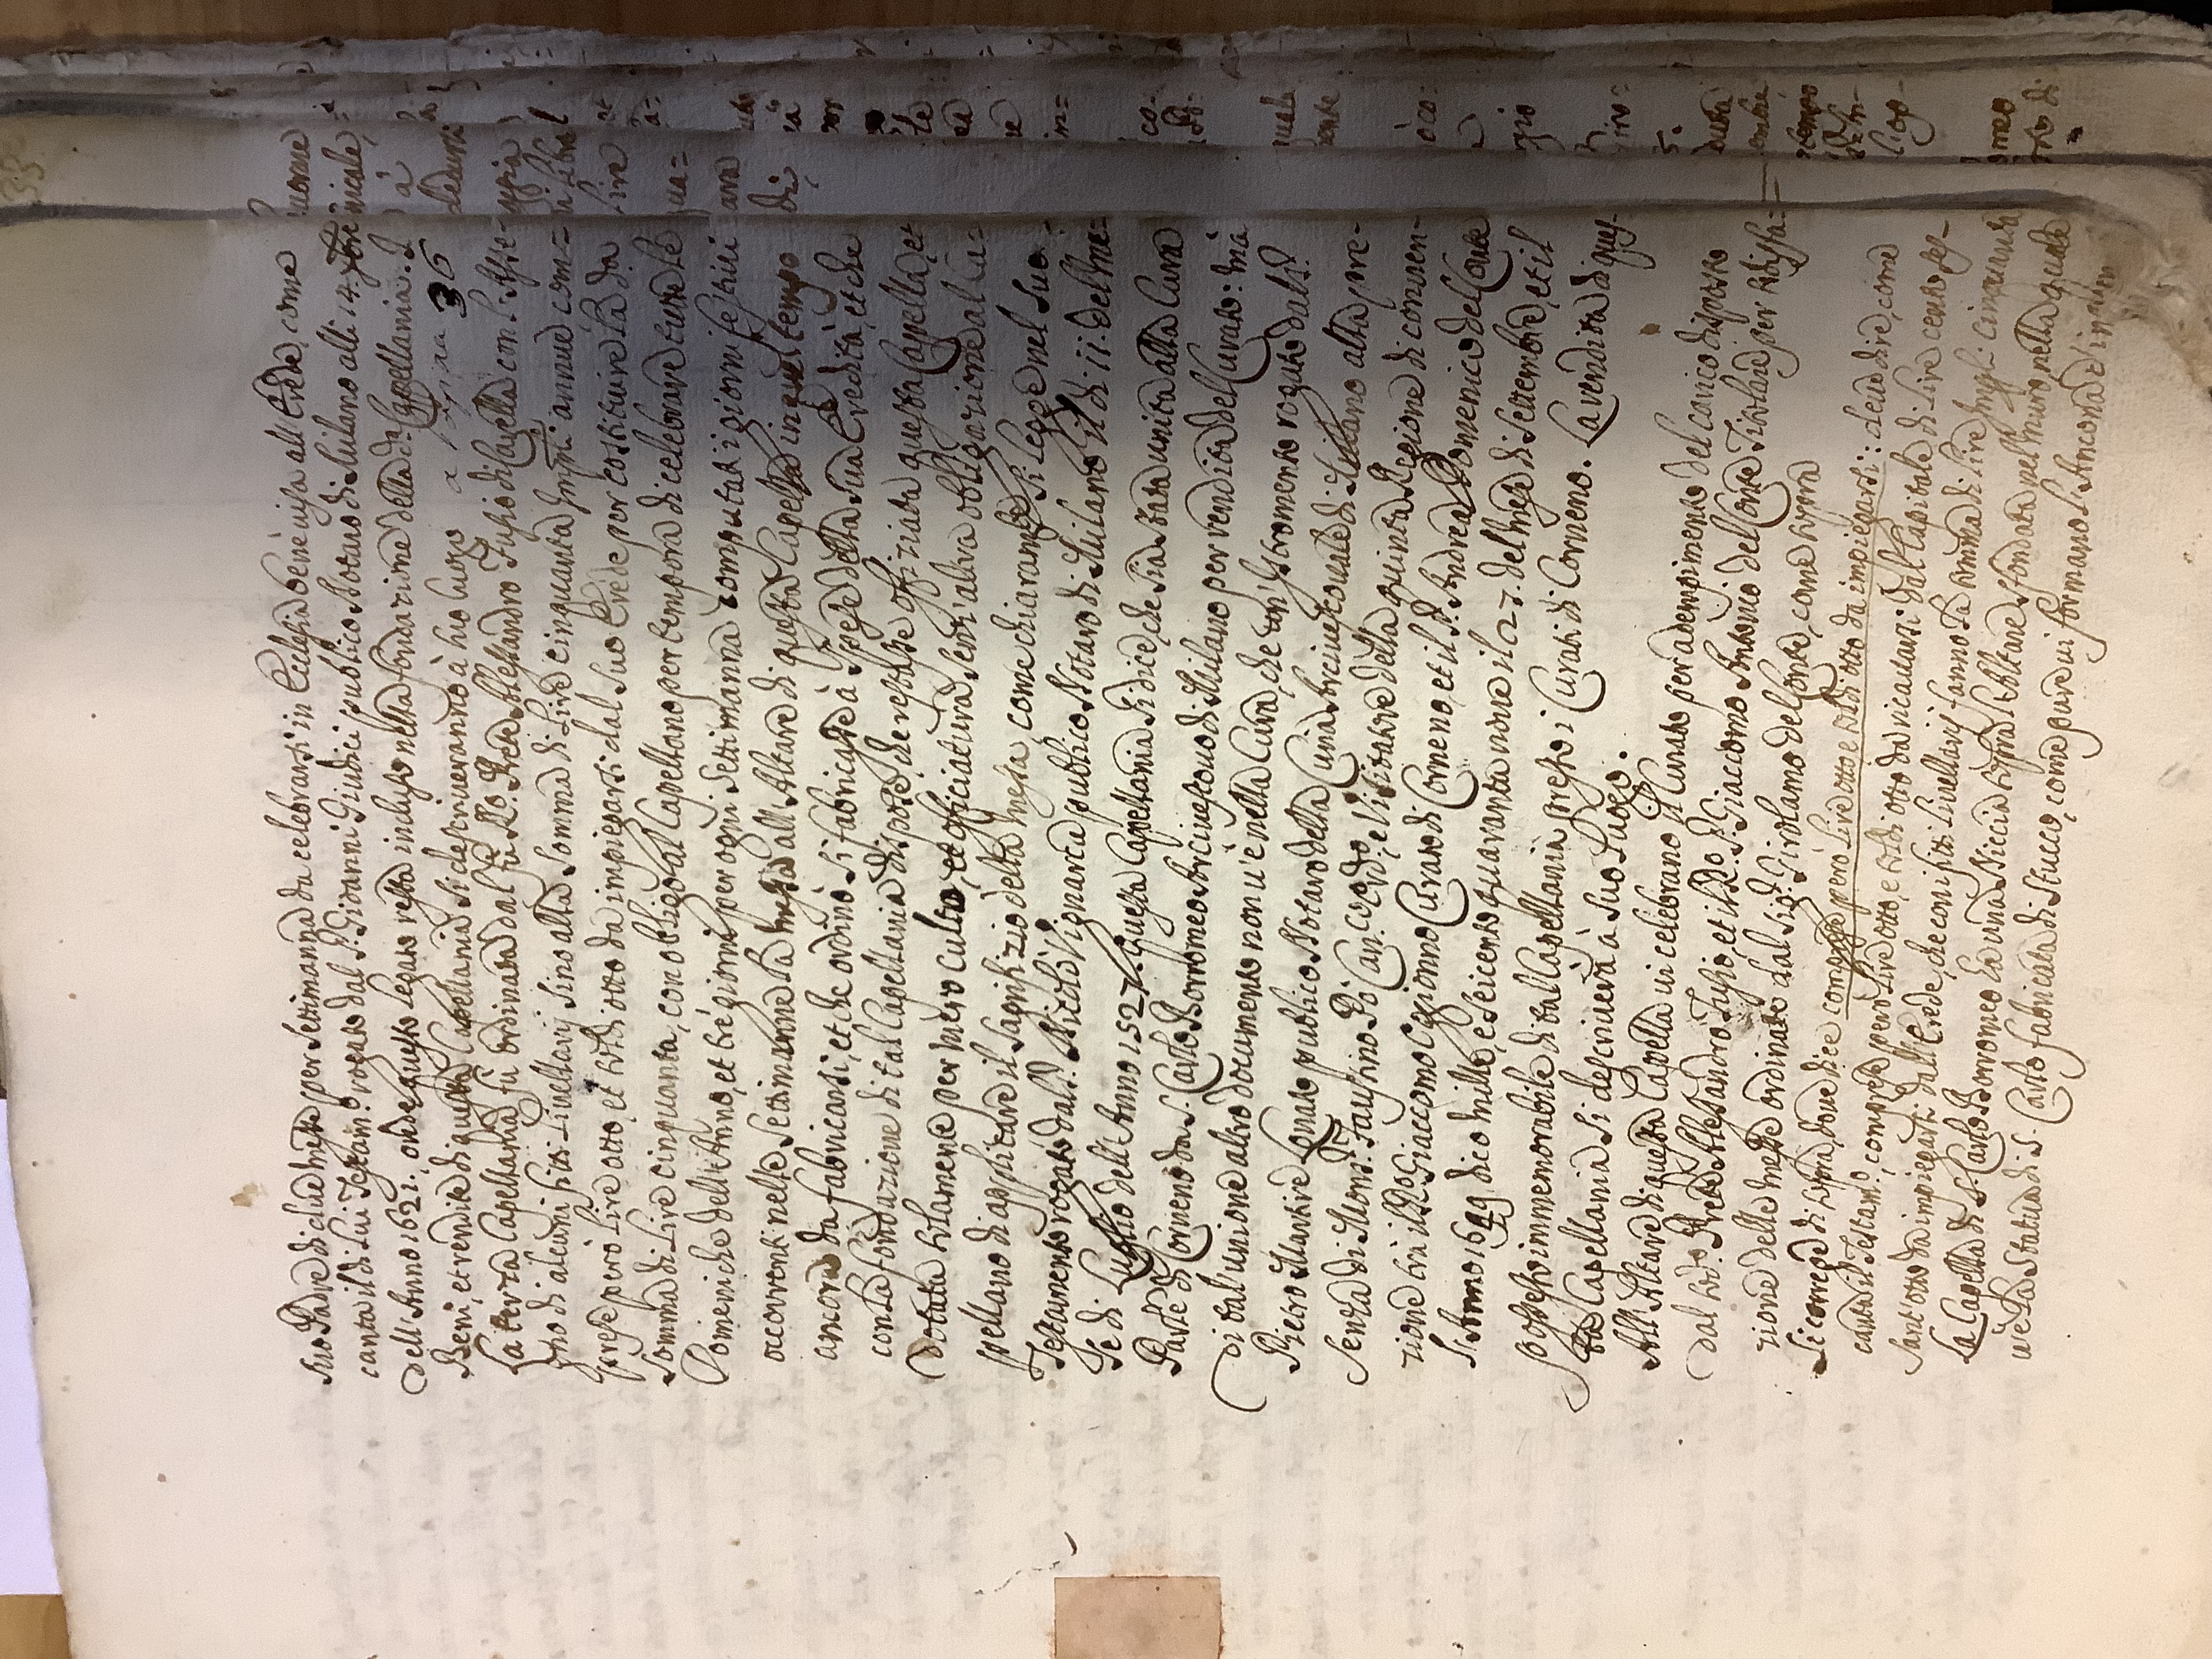 suo Padre di due messe per Settimana da celebrarsi in Chiesa bene uisa all'Erede, come
canta il di Lui Testam.to rogato dal S.r Giouanni Giudici publico Notaro di Milano alli 14.
Dell'Anno 1621., onde questo Legato resta incluso nella fondazione della d.a Capellania. I
Beni, et rendite di questa Capellania si descriueranno à suo Luogo a pagina 36
La terza Capellania fù ordinata dal fù R.do Prete Alessandro Fusio di Capella con l'asse-
gno di alcuni fitti Liuellarij sino alla somma di Lire cinquanta Imp.li annue com=
prese però Lire otto, et soldi otto da impiegarsi dal suo Erede per costituire la d.a
somma di Lire cinquanta, con obligo al Capellano per tempora di celebrare tutte le
Domeniche dell'Anno, et trè giorni per ogni Settimana computati i giorni festiui
occorrenti nelle Settimane la messa all'Altare di questa Capella in quel tempo
ancora da fabricarsi, et che ordinò si fabricasse à spese della sua Eredità, et che
con la fondazione di tal Capellania dispose, che restasse offiziata questa Capella, et
Dotata solamente per mero culto, et officiatura senz'altra obligazione al Ca=
pellano di applicare il sagrifizio della messa come chiaram.te si legge nel suo
Testamento rogato dal S. Nicolò Vignarca publico Notaro di Milano il dì 11. del me=
se di Luglio dell'Anno 1527. questa Capellania si dice, che sia stata unita alla Cura
Parte di Corneno da S. Carlo Borromeo Arciuescouo di Milano per rendita del Curato: mà
Di tal unione altro documento non u'è nella Cura, che un Istromento rogato dal S.
Piero Martire Lonate publico Notaro della Curia Arciuescouale di Milano alla pre-
senza di Mons. Faustino Po Can.co ord.o, e Visitatore della quinta Regione di conuen-
zione trà il R.do Giaccomo Oggionno Curato di Corneno, et il S. Andrea Domenico del Conte
l'Anno 1649 dico mille, e seicento quaranta noue il 27. del mese di Settembre, et il
possesso immemorabile di tal Capellania presso i Curati di Corneno. La rendita di ques-
ta Capellania si descriuerà à suo Luogo.
All'Altare di questa Capella ui celebrano il Curato per adempimento del carico disposto
dal sud.o Prete Alessandro Fusio, et il R.do S. Giaccomo Antonio del Conte Titolare per sodisfa=
zione delle messe ordinate dal Sig.r Girolamo del Conte, come sopra
Si corregge di sopra, doue dice comprese però Lire otto e soldi otto da impiegarsi: deue dire, come
canta il Testam.to, comprese però Lire otto, e soldi otto da ricauarsi dal Capitale di Lire cento ses-
sant'otto da impiegarsi dall'Erede, che con i fitti Liuellarij fanno la somma di Lire Imp.li cinquanta
La Capella di S. Carlo Borromeo hà una Niccia sopra l'Altare sfondata nel muro nella quale
ui è la Statua di S. Carlo fabricata di Stucco, come pure ui formano l'Ancona